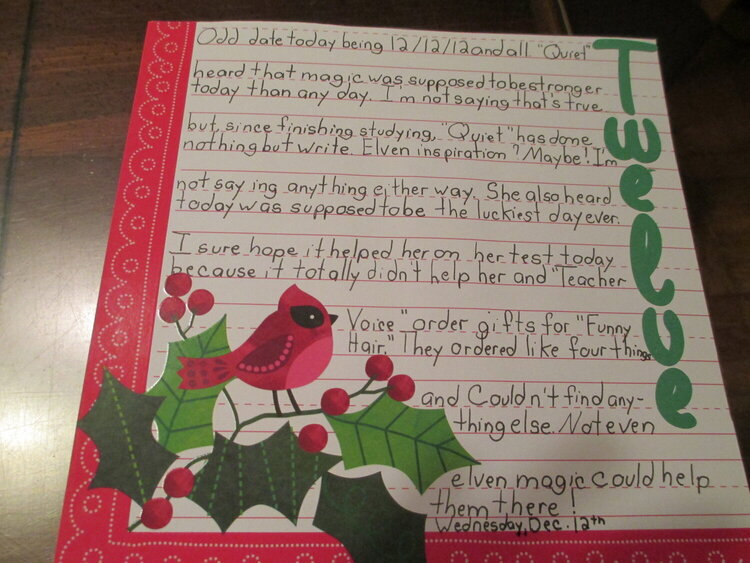 Odd date today being 12/12/12 and all. "Quiet"
heard that magic was supposed to be stronger
today than any day. I'm not saying that's true
but, since finishing studying, "Quiet" has done
nothing but write. Elven inspiration? Maybe! I'm
not saying anything either way. She also heard
today was supposed to be the luckiest day ever.
I sure hope it helped her on her test today
because it totally didn't help her and "Teacher
Voice" order gifts for "Funny
Hair." They ordered like four things
and Couldn't find any-
thing else. Not even
elven magic could help
them there!
Wednesday, Dec. 12th
Twelve